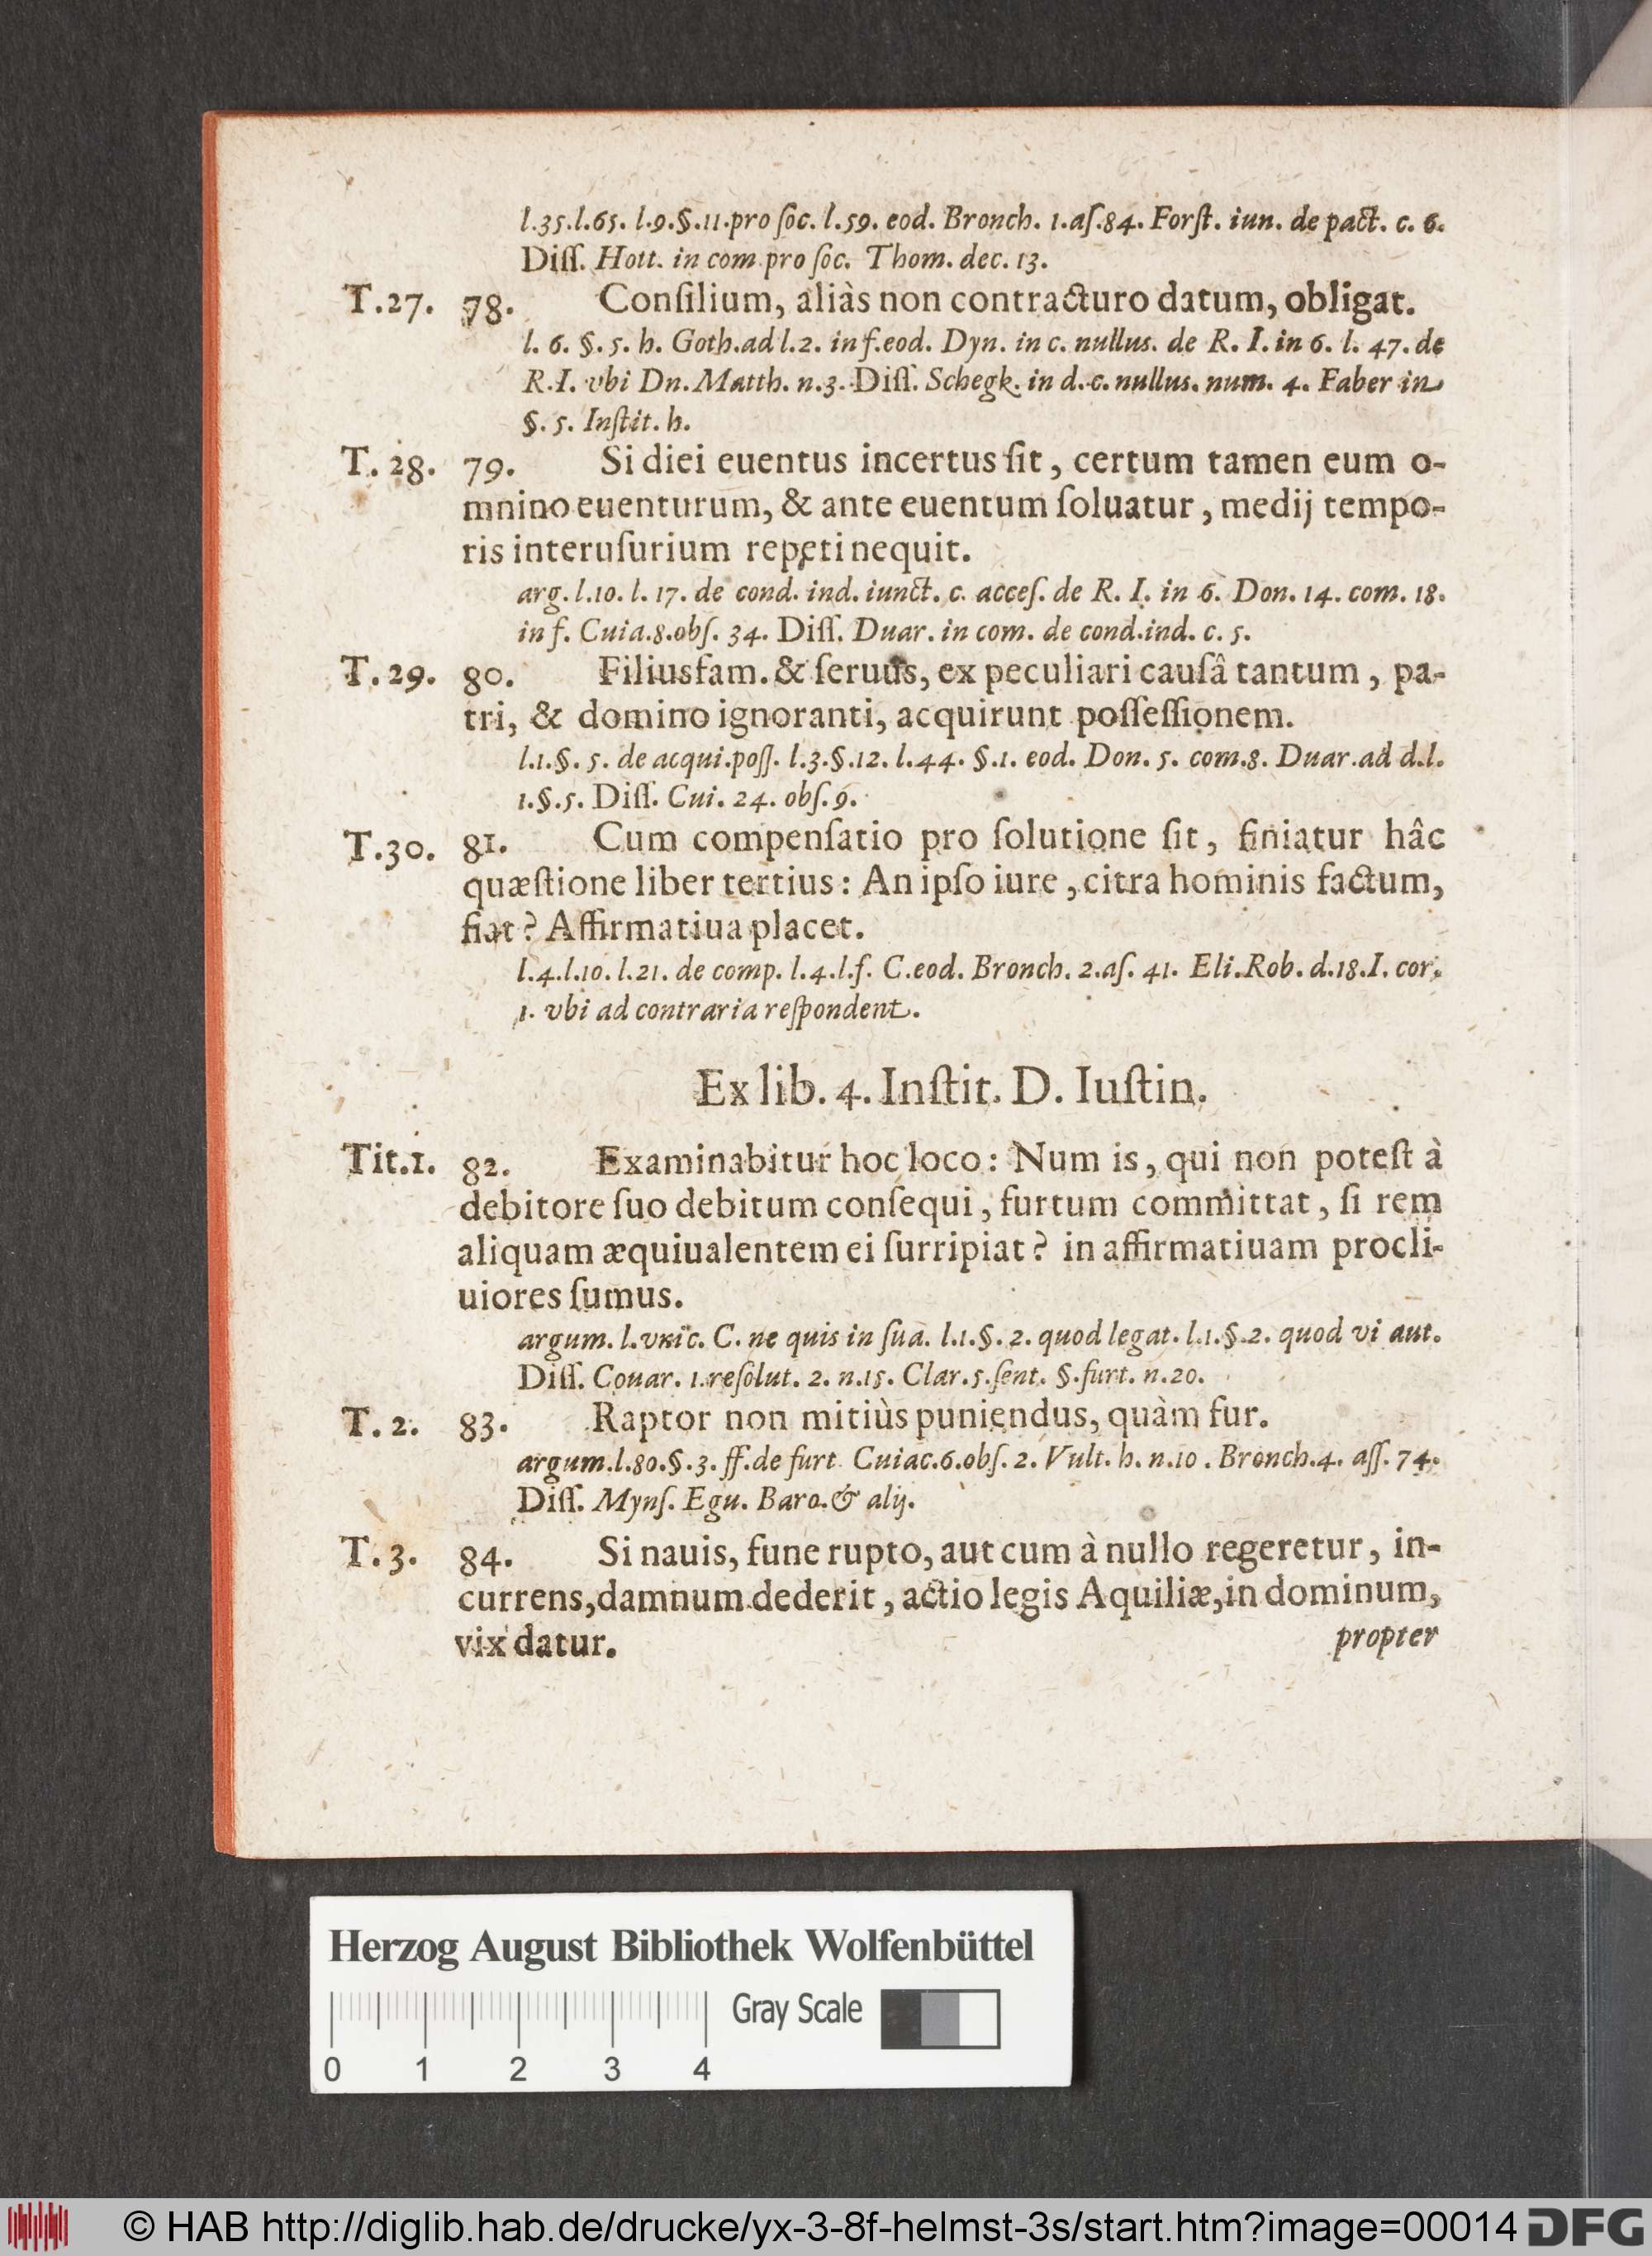 l.35.l.65. l.9.§.11.pro ſoc. l.59. eod. Bronch. 1.aſ.84. Forſt. iun. de pact. c. 6.
Diſſ. Hott. in com. pro ſoc. Thom. dec. 13.
T.27. 78. Conſilium, aliàs non contracturo datum, obligat.
l. 6. §. 5. h. Goth. ad l.2. in f. eod. Dyn. in c. nullus. de R. I. in 6. l. 47. de
R.I. vbi Dn. Matth. n.3. Diſſ. Schegk. in d. c. nullus. num. 4. Faber in
§. 5. Inſtit. h.
T. 28. 79. Si diei euentus incertus ſit, certum tamen eum o-
mnino euenturum, & ante euentum ſoluatur, medij tempo-
ris interuſurium repeti nequit.
arg. l.10. l. 17. de cond. ind. iunct. c. acceſ. de R. I. in 6. Don. 14. com. 18.
in f. Cuia.8.obſ. 34. Diſſ. Duar. in com. de cond.ind. c. 5.
T. 29. 80. Filiusfam. & ſeruus, ex peculiari cauſâ tantum, pa-
tri, & domino ignoranti, acquirunt poſſeſſionem.
l.1.§. 5. de acqui.poſſ. l.3.§.12. l.44. §.1. eod. Don. 5. com.8. Duar.ad d.l.
1.§.5. Diſſ. Cui. 24. obſ.9.
T.30. 81. Cum compenſatio pro ſolutione ſit, finiatur hâc
quæſtione liber tertius: An ipſo iure, citra hominis factum,
fiat? Affirmatiua placet.
l.4.l.10. l.21. de comp. l.4.l.f. C.eod. Bronch. 2.aſ. 41. Eli.Rob. d.18.I. cor.
1. vbi ad contraria reſpondent.
Ex lib. 4. Inſtit. D. Iuſtin.
Tit.1. 82. Examinabitur hoc loco: Num is, qui non poteſt à
debitore ſuo debitum conſequi, furtum committat, ſi rem
aliquam æquiualentem ei ſurripiat? in affirmatiuam procli-
uiores ſumus.
argum. l.vnic. C. ne quis in ſua. l.1.§. 2. quod legat. l.1.§.2. quod vi aut.
Diſſ. Couar. 1.reſolut. 2. n.15. Clar.5.ſent. §.furt. n.20.
T. 2. 83. Raptor non mitiùs puniendus, quàm fur.
argum.l.80.§.3. ff.de furt. Cuiac.6.obſ. 2. Vult. h. n.10. Bronch.4. aſſ. 74.
Diſſ. Mynſ. Egu. Baro. & alij.
T. 3. 84. Si nauis, fune rupto, aut cum à nullo regeretur, in-
currens, damnum dederit, actio legis Aquiliæ, in dominum,
vix datur.
propter
Herzog August Bibliothek Wolfenbüttel
Gray Scale
0 1 2 3 4
© HAB http://diglib.hab.de/drucke/yx-3-8f-helmst-3s/start.htm?image=00014 DFG